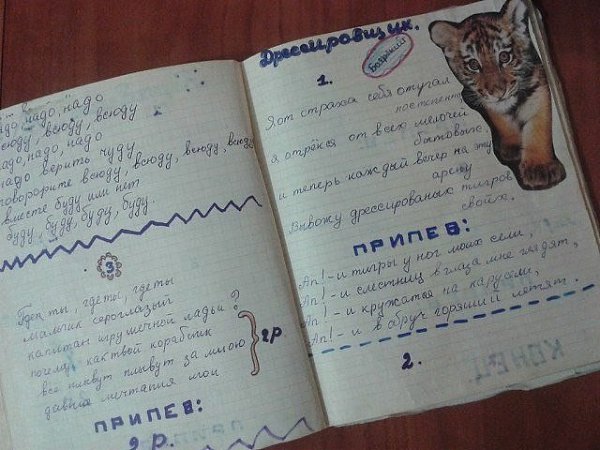 надо, надо
всюду, всюду
надо, надо, надо
надо верить чуду
поворорите всюду, всюду, всюду, всюду
вместе буду или нет
буду, буду, буду, буду.
3
Где ты, где ты, где ты
мальчик сероглазый
капитан игрушечной ладьи?
почему как твой кораблик
все плывут плывут за мною
давние мечтания мои
2р.
ПРИПЕВ:
2 р.
Дрессировщик.
Боярский
1.
Я от страха себя отучал
постепенно
я отрёкся от всех мелочей
бытовых,
и теперь каждый вечер на эту
арену
Вывожу дрессированых тигров
своих.
ПРИПЕВ:
Ап! - и тигры у ног моих сели,
Ап! - и с лестниц в глаза мне глядят,
Ап! - и кружатся на карусели,
Ап! - и в обруч горящий летят.
2.